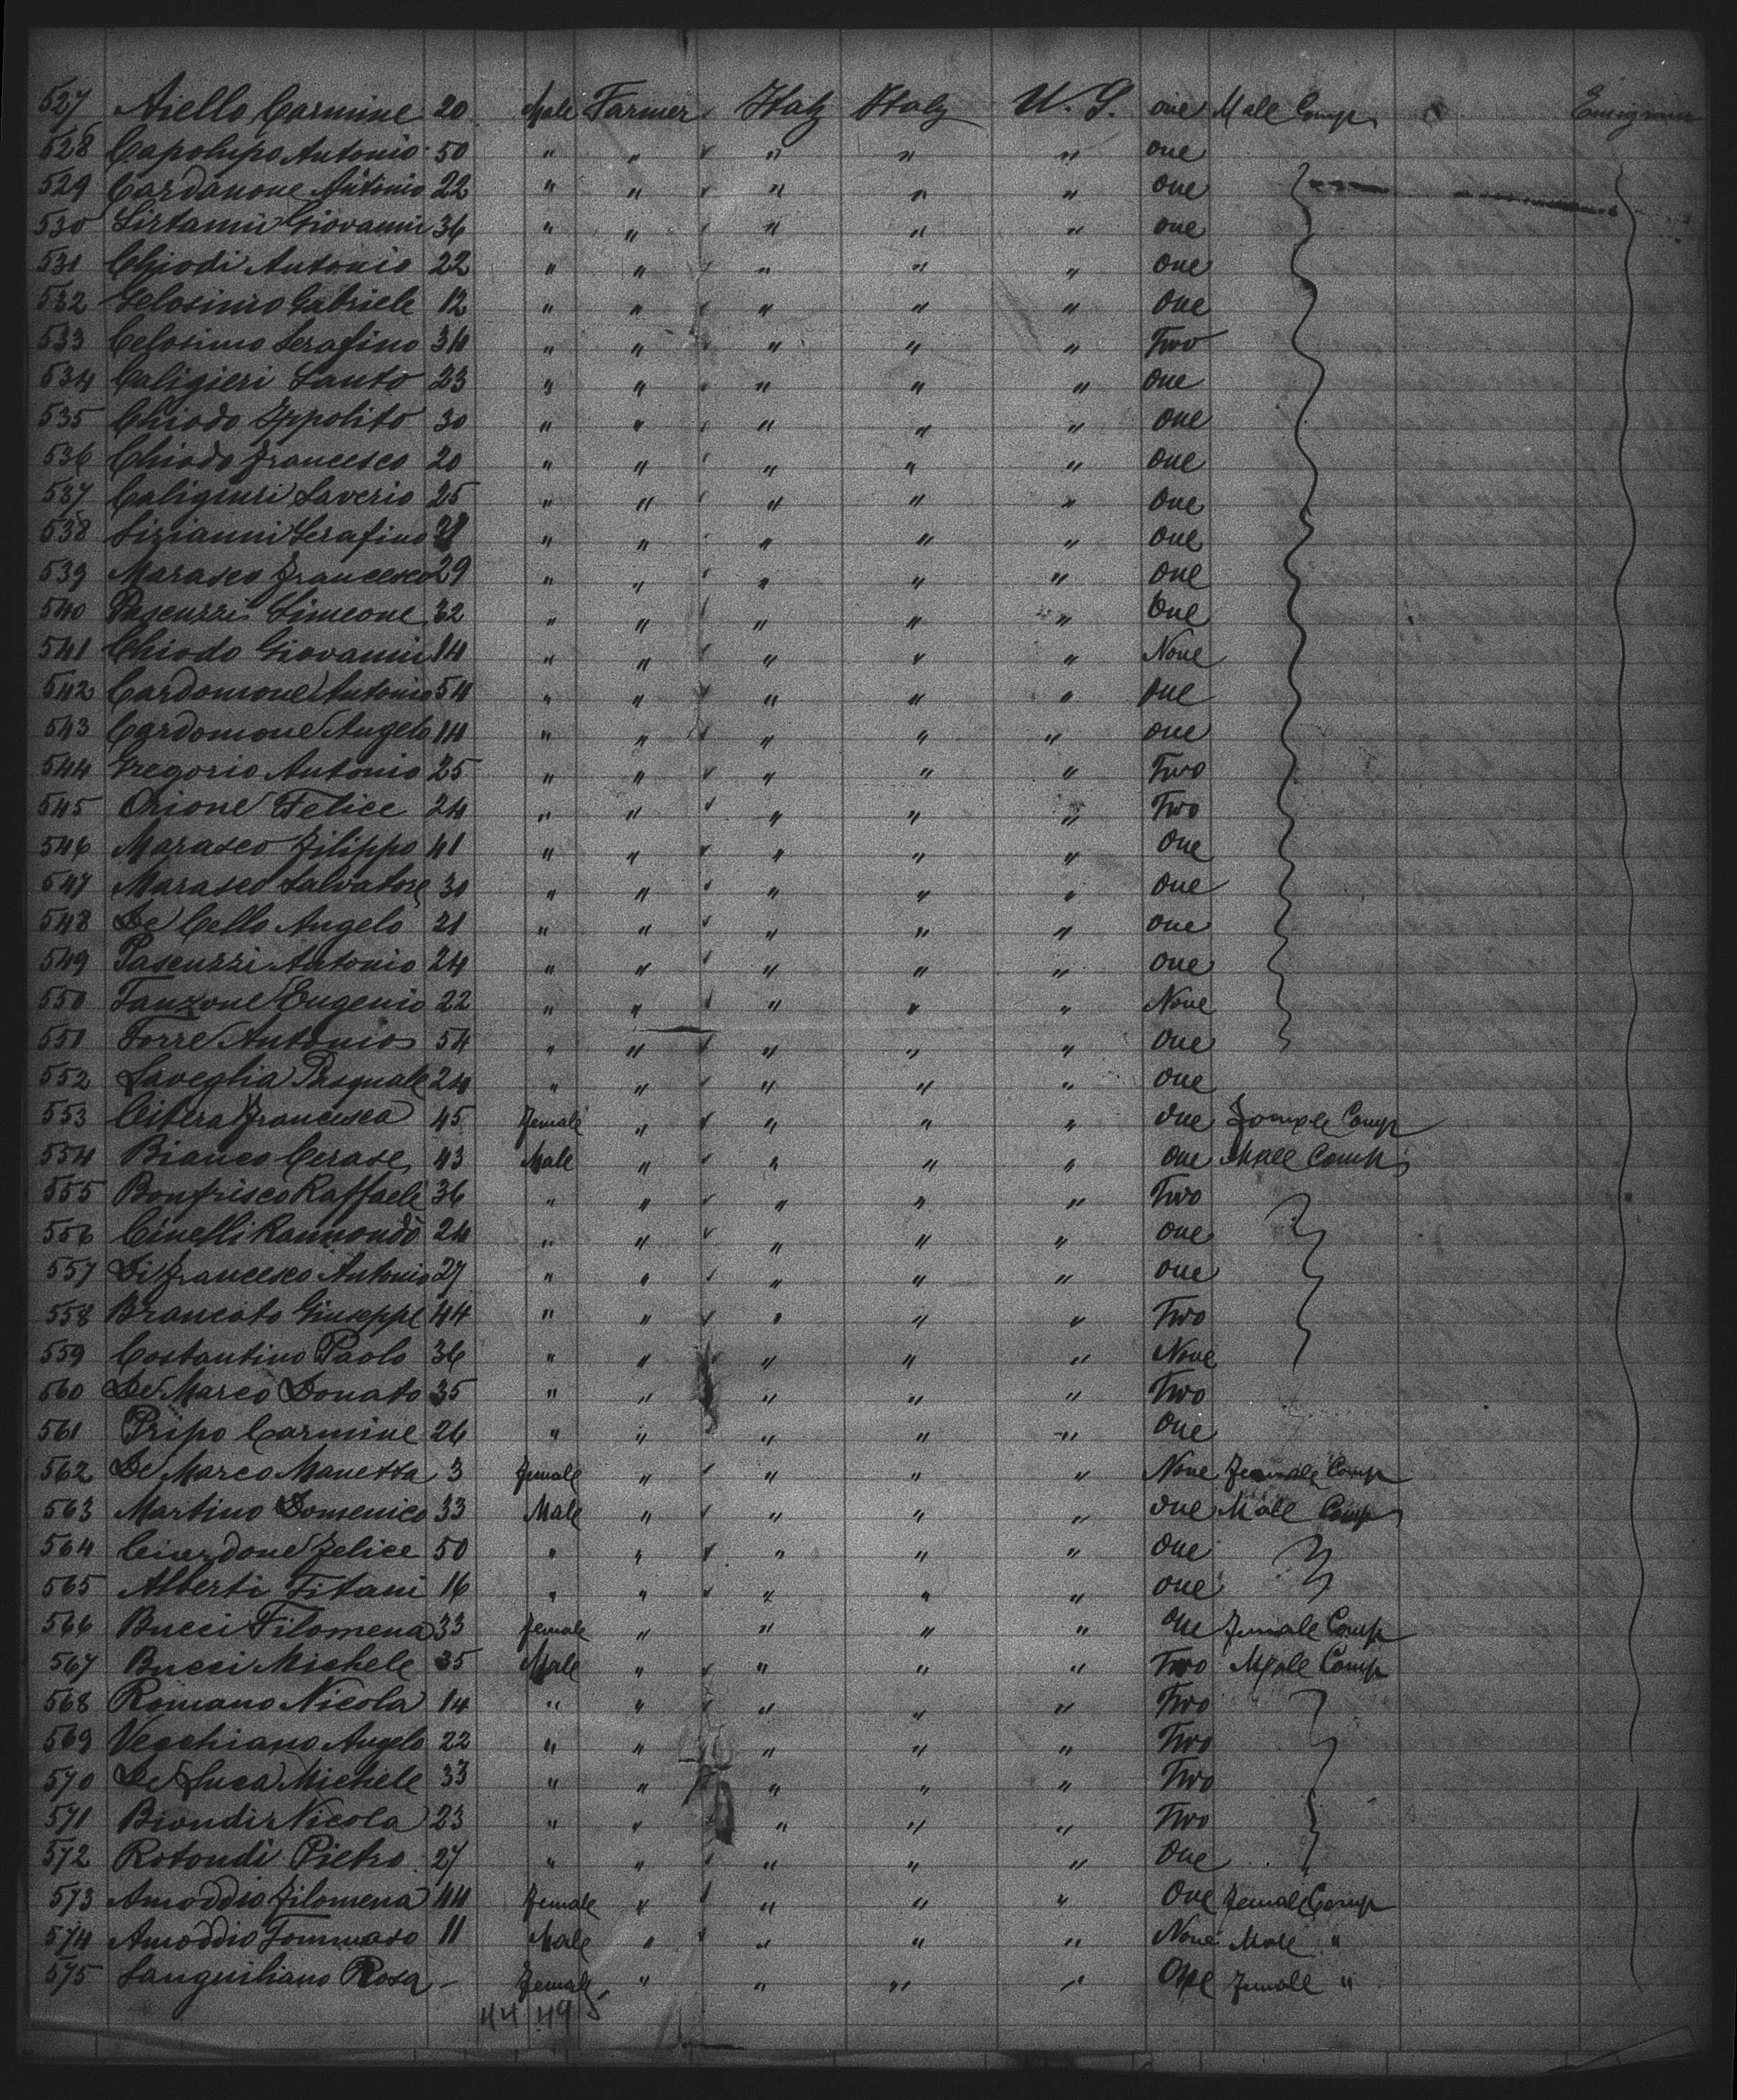 527 Aiello Carmine 20 Male Farmer Italy Italy U. S. one Male Comp. Emigrant
528 Capolupo Antonio 50 " " " " " one
529 Cardanone Antonio 22 " " " " " one
530 Sirtanni Giovanni 36 " " " " " one
531 Chiodi Antonio 22 " " " " " one
532 Gabriele 12 " " " " " One
533 Celosimo Serafino 34 " " " " " Two
534 Caligieri Santo 23 " " " " " One
535 Chiodo Ippolito 30 " " " " " one
536 Chiodo Francesco 20 " " " " " one
537 Caligiuri Saverio 25 " " " " " one
538 Sirianni Serafino " " " " " one
539 Marasco Francesco 29 " " " " " one
540 Pascuzzi Simeone 32 " " " " " One
541 Chiodo Giovanni 14 " " " " " None
542 Cardomone Antonio 54 " " " " " one
543 Cardomone Angelo 14 " " " " " one
544 Gregorio Antonio 25 " " " " " Two
545 Orione Felice 24 " " " " " Two
546 Marasco Filippo 41 " " " " " One
547 Marasco Salvatore 30 " " " " " one
548 De Cello Angelo 21 " " " " " one
549 Pascuzzi Antonio 24 " " " " " one
550 Fanzone Eugenio 22 " " " " " None
551 Torre Antonio 54 " " " " " one
552 Laveglia Pasquale 24 " " " " " one
553 Citera Francesca 45 Female " " " " one Female Comp
554 Bianco Cerase 43 Male " " " " one Male Comp
555 Bonfrisco Raffaele 36 " " " " " Two
556 Cinelli Raimondo 24 " " " " " one
557 Di Francesco Antonio 27 " " " " " one
558 Brancato Giuseppe 44 " " " " " Two
559 Costantino Paolo 36 " " " " " None
560 De Marco Donato 35 " " " " " Two
561 Pripo Carmine 26 " " " " " One
562 De Marco 3 Female " " " " None Female Comp
563 Martino Domenico 33 Male " " " " one Male Comp
564 Felice 50 " " " " " One
565 Alberti Titani 16 " " " " " one
566 Bucci Filomena 33 Female " " " " One Female Comp
567 Bucci Michele 35 Male " " " " Two Male Comp
568 Romano Nicola 14 " " " " " Two
569 Vecchiano Angelo 22 " " " " " Two
570 De Luca Michele 33 " " " " " Two
571 Biondi Nicola 23 " " " " " Two
572 Rotondi Pietro 27 " " " " " One
573 Amoddio Filomena 44 Female " " " " One Female Comp
574 Amoddio Tommaso 11 Male " " " " None Male "
575 Sanguiliano Rosa - Female " " " " One Female "
44 49 5